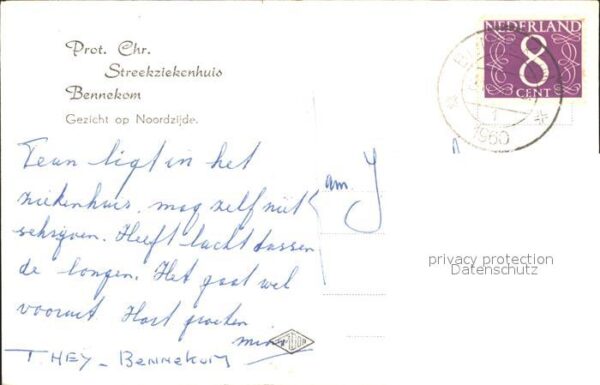 Prot. Chr.
Streekziekenhuis
Bennekom
Gezicht op Noordzijde.
NEDERLAND
8
CENT
1
1960
Teun ligt in het
ziekenhuis, mag zelf niet
schrijven. Heeft lucht tussen
de longen. Het gaat wel
vooruit Hart groeten
T. HEY - BENNEKOM
am
privacy protection
Datenschutz